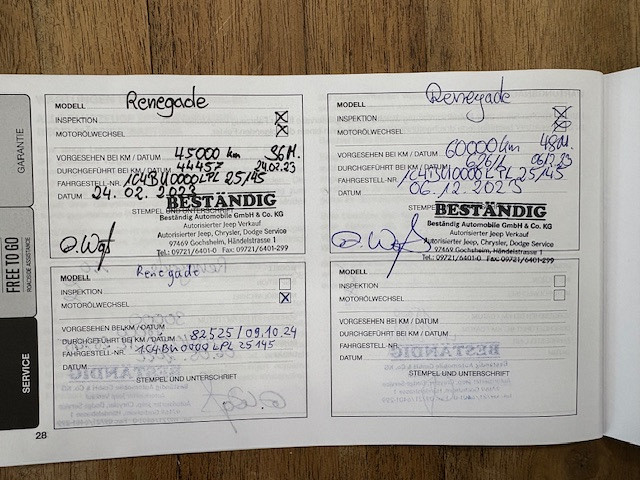 GARANTIE
FREE TO GO
ROADSIDE ASSISTANCE
SERVICE
MODELL Renegade
INSPEKTION
MOTORÖLWECHSEL
VORGESEHEN BEI KM / DATUM 45000 km 36 M.
DURCHGEFÜHRT BEI KM / DATUM 44457 24.02.23
FAHRGESTELL-NR. 1C4BU0000LPL25145
DATUM 24.02.2023
STEMPEL UND UNTERSCHRIFT
BESTÄNDIG
Beständig Automobile GmbH & Co. KG
Autorisierter Jeep Verkauf
Autorisierter Jeep, Chrysler, Dodge Service
97469 Gochsheim, Händelstrasse 1
Tel.: 09721/6401-0 Fax: 09721/6401-299
MODELL Renegade
INSPEKTION
MOTORÖLWECHSEL
VORGESEHEN BEI KM / DATUM 60000 km 48 M.
DURCHGEFÜHRT BEI KM / DATUM 06.12.23
FAHRGESTELL-NR. 1C4BU0000LPL25145
DATUM 06.12.2023
STEMPEL
BESTÄNDIG
Beständig Automobile GmbH & Co. KG
Autorisierter Jeep Verkauf
Autorisierter Jeep, Chrysler, Dodge Service
97469 Gochsheim, Händelstrasse 1
Tel.: 09721/6401-0 Fax: 09721/6401-299
MODELL Renegade
INSPEKTION
MOTORÖLWECHSEL
VORGESEHEN BEI KM / DATUM
DURCHGEFÜHRT BEI KM / DATUM 82525 / 09.10.24
FAHRGESTELL-NR. 1C4BU0000LPL25145
DATUM
STEMPEL UND UNTERSCHRIFT
MODELL
INSPEKTION
MOTORÖLWECHSEL
VORGESEHEN BEI KM / DATUM
DURCHGEFÜHRT BEI KM / DATUM
FAHRGESTELL-NR.
DATUM
STEMPEL UND UNTERSCHRIFT
28